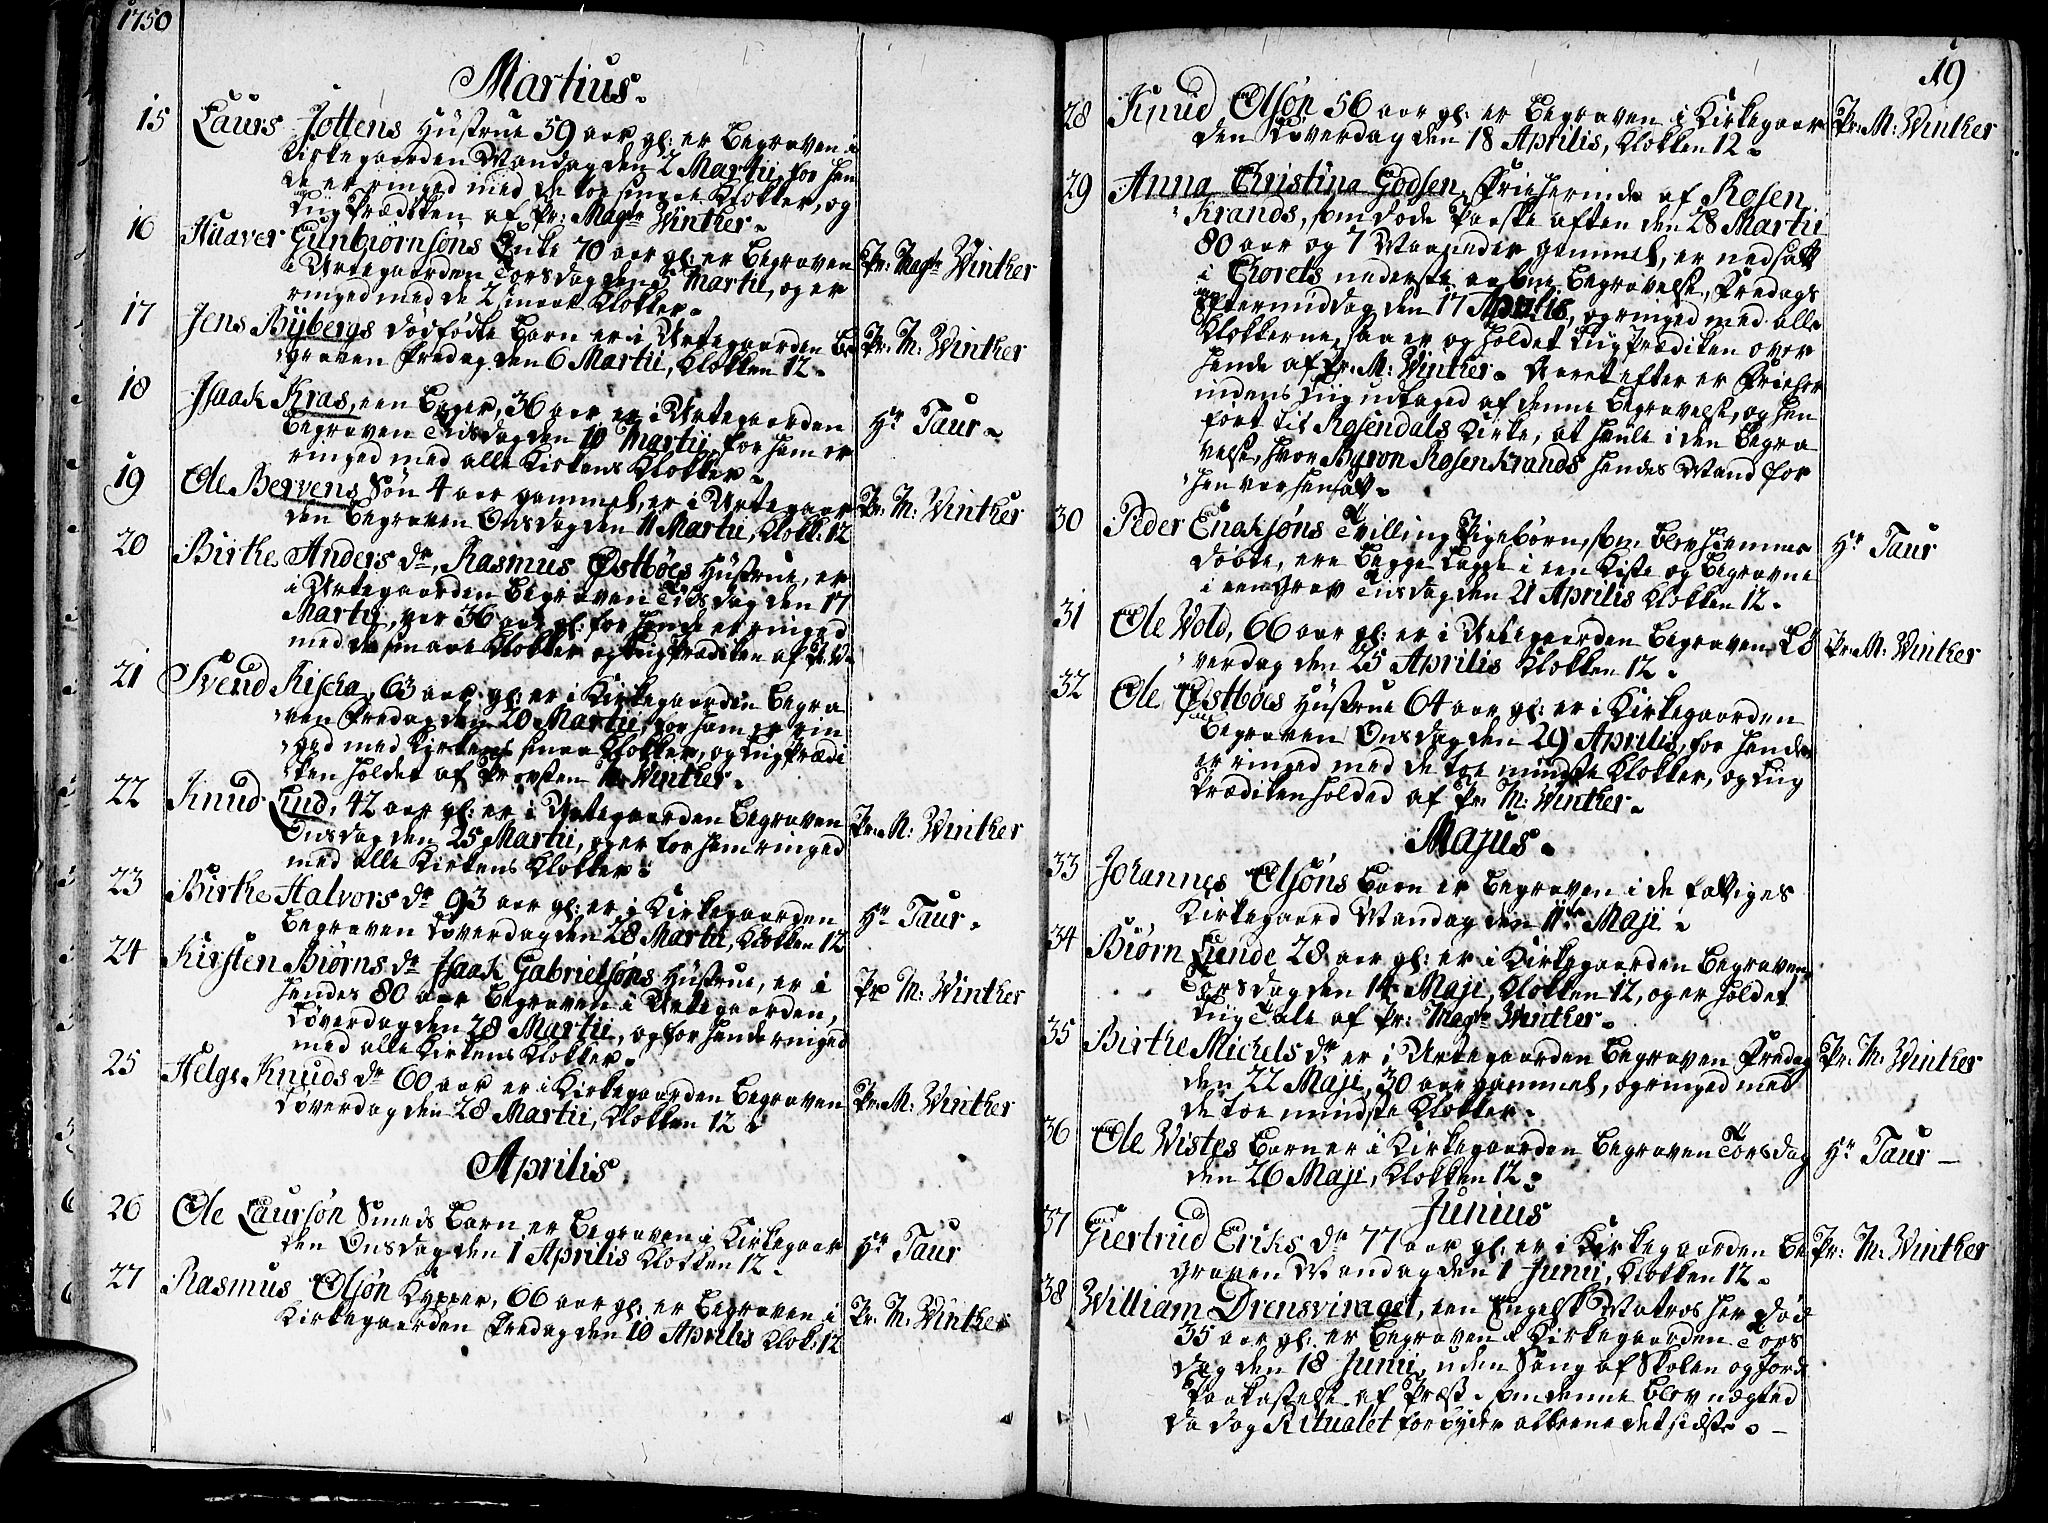 1750
Martius.
15 Laurs Jottens Hustrue 59 aar gl: er begraven i
Kirkegaarden Mandag den 2 Martii, for hen
de er ringed med de toe smaae Klokker, og
Liig Prædiken af Pr: Magr Winther.
16 Gunbiørnsøns Enke 70 aar gl: er begraven
i Urtegaarden Torsdag den 5 Martii, og er
ringed med de 2 smaae Klokker.
Pr: Magr Winther
17 Jens Bÿbergs dødfødte barn er i Urtegaarden be
graven Fredag den 6 Martii, Klokken 12.
Pr: M: Winther
18 Isaak Kras, een 36 aar er i Urtegaarden
begraven Tisdag den 10 Martii, for ham er
ringed med alle Kirkens Klokker.
Hr Taur.
19 Ole Bervens Søn 4 aar gammel, er i Urtegaar
den begraven Onsdag den 11 Martii, Klokk: 12
Pr: M: Winther
20 Birthe Anders dr, Rasmus Østbøes Hustrue, er
i Urtegaarden begraven Tisdag den 17
Martii, var 36 aar gl: for hende er ringed
med de smaae Klokker og Liig Prædiken af Pr. W.
21 Svend Rischa, 63 aar gl: er i Kirkegaarden begra
ven Fredag den 20 Martii, for ham er rin
ged med Kirkens smaa Klokker, og Liig Prædi
ken holdet af Provsten M: Winther.
22 Knud Lund, 42 aar gl: er i Urtegaarden begraven
Onsdag den 25 Martii, og er for ham ringed
med alle Kirkens Klokker.
Pr: M: Winther
23 Birthe Halvors dr 93 aar gl: er i Kirkegaarden
begraven Løverdag den 28 Martii, Klokken 12
Hr Taur.
24 Kirsten Biørns dr Isaak Gabrielsøns Hustrue, er i
hendes 80 aar begraven i Urtegaarden,
Løverdag den 28 Martii, og for hende ringed
med alle Kirkens Klokker.
Pr M: Winther
25 Helge Knuds dr 60 aar er i Kirkegaarden begraven
Løverdag den 28 Martii, Klokken 12
Pr: M: Winther
Aprilis
26 Ole Laursøn Smeds barn er begraven i Kirkegaar
den Onsdag den 1 Aprilis Klokken 12.
Hr Taur
27 Rasmus Olsøn Kypper, 66 aar gl: er begraven i
Kirkegaarden Fredag den 10 Aprilis Klok: 12
Pr: M: Winther
19
28 Knud Olsøn 56 aar gl: er begraven i Kirkegaar
den Løverdag den 18 Aprilis, Klokken 12.
Pr: M: Winther
29 Anna Christina Godsen, Frieherinde af Rosen
Krands, som døde Paaske aften den 28 Martii
80 aar og 7 Maaneder gammel, er nedsatt
i Chorets nederste begravelse, Fredags
Eftermiddag den 17 Aprilis, og ringed med alle
Klokkerne, saa er og holdet Liig Prædiken over
hende af Pr: M: Winther. Aaret efter er Frieher
indens Liig udtaged af denne begravelse, og hen
ført til Rosendals Kirke, at hvile i den begra
velse, hvor Byron RosenKrands hendes Mand for
hen var hensatt.
30 Peder Enoksøns Tvilling Pigebørn, som blev hiemme
døbte, ere begge lagde i een Kiste og begravne
i een Grav Tisdag den 21 Aprilis Klokken 12.
Hr Taur
31 Ole Vold, 66 aar gl: er i Urtegaarden begraven Lø
verdag den 25 Aprilis Klokken 12.
Pr: M: Winther
32 Ole Østbøes Hustrue 64 aar gl: er i Kirkegaarden
begraven Onsdag den 29 Aprilis, for hende
er ringed med de toe mindste Klokker, og Liig
Prædiken holded af Pr: M: Winther.
Majus.
33 Johannes Olsøns barn er begraven i de fattiges
Kirkegaard Mandag den 11te Maji
34 Biørn Lunde 28 aar gl: er i Kirkegaarden begraven
Torsdag den 14 Maji, Klokken 12, og er holdet
Liig Tale af Pr: Magr Winther.
35 Birthe Michels dr er i Urtegaarden begraven Fredag
den 22 Maji, 30 aar gammel, og ringed med
de toe mindste Klokker.
Pr: M: Winther
36 Ole Vistes barn er i Kirkegaarden begraven Torsdag
den 26 Maji, Klokken 12.
Hr Taur
Junius
37 Giertrud Eriks dr 77 aar gl: er i Kirkegaarden be
graven Mandag den 1 Junii, Klokken 12.
Pr: M: Winther
38 William Drensviraget, een Engelsk Matros her død
35 aar gl: er begraven i Kirkegaarden Tors
dag den 18 Junii, uden Sang af Skolen og Jords
Paakastelse af Præst, som denne blev nægted
da dog Ritualet forbyder alleene det sidste.